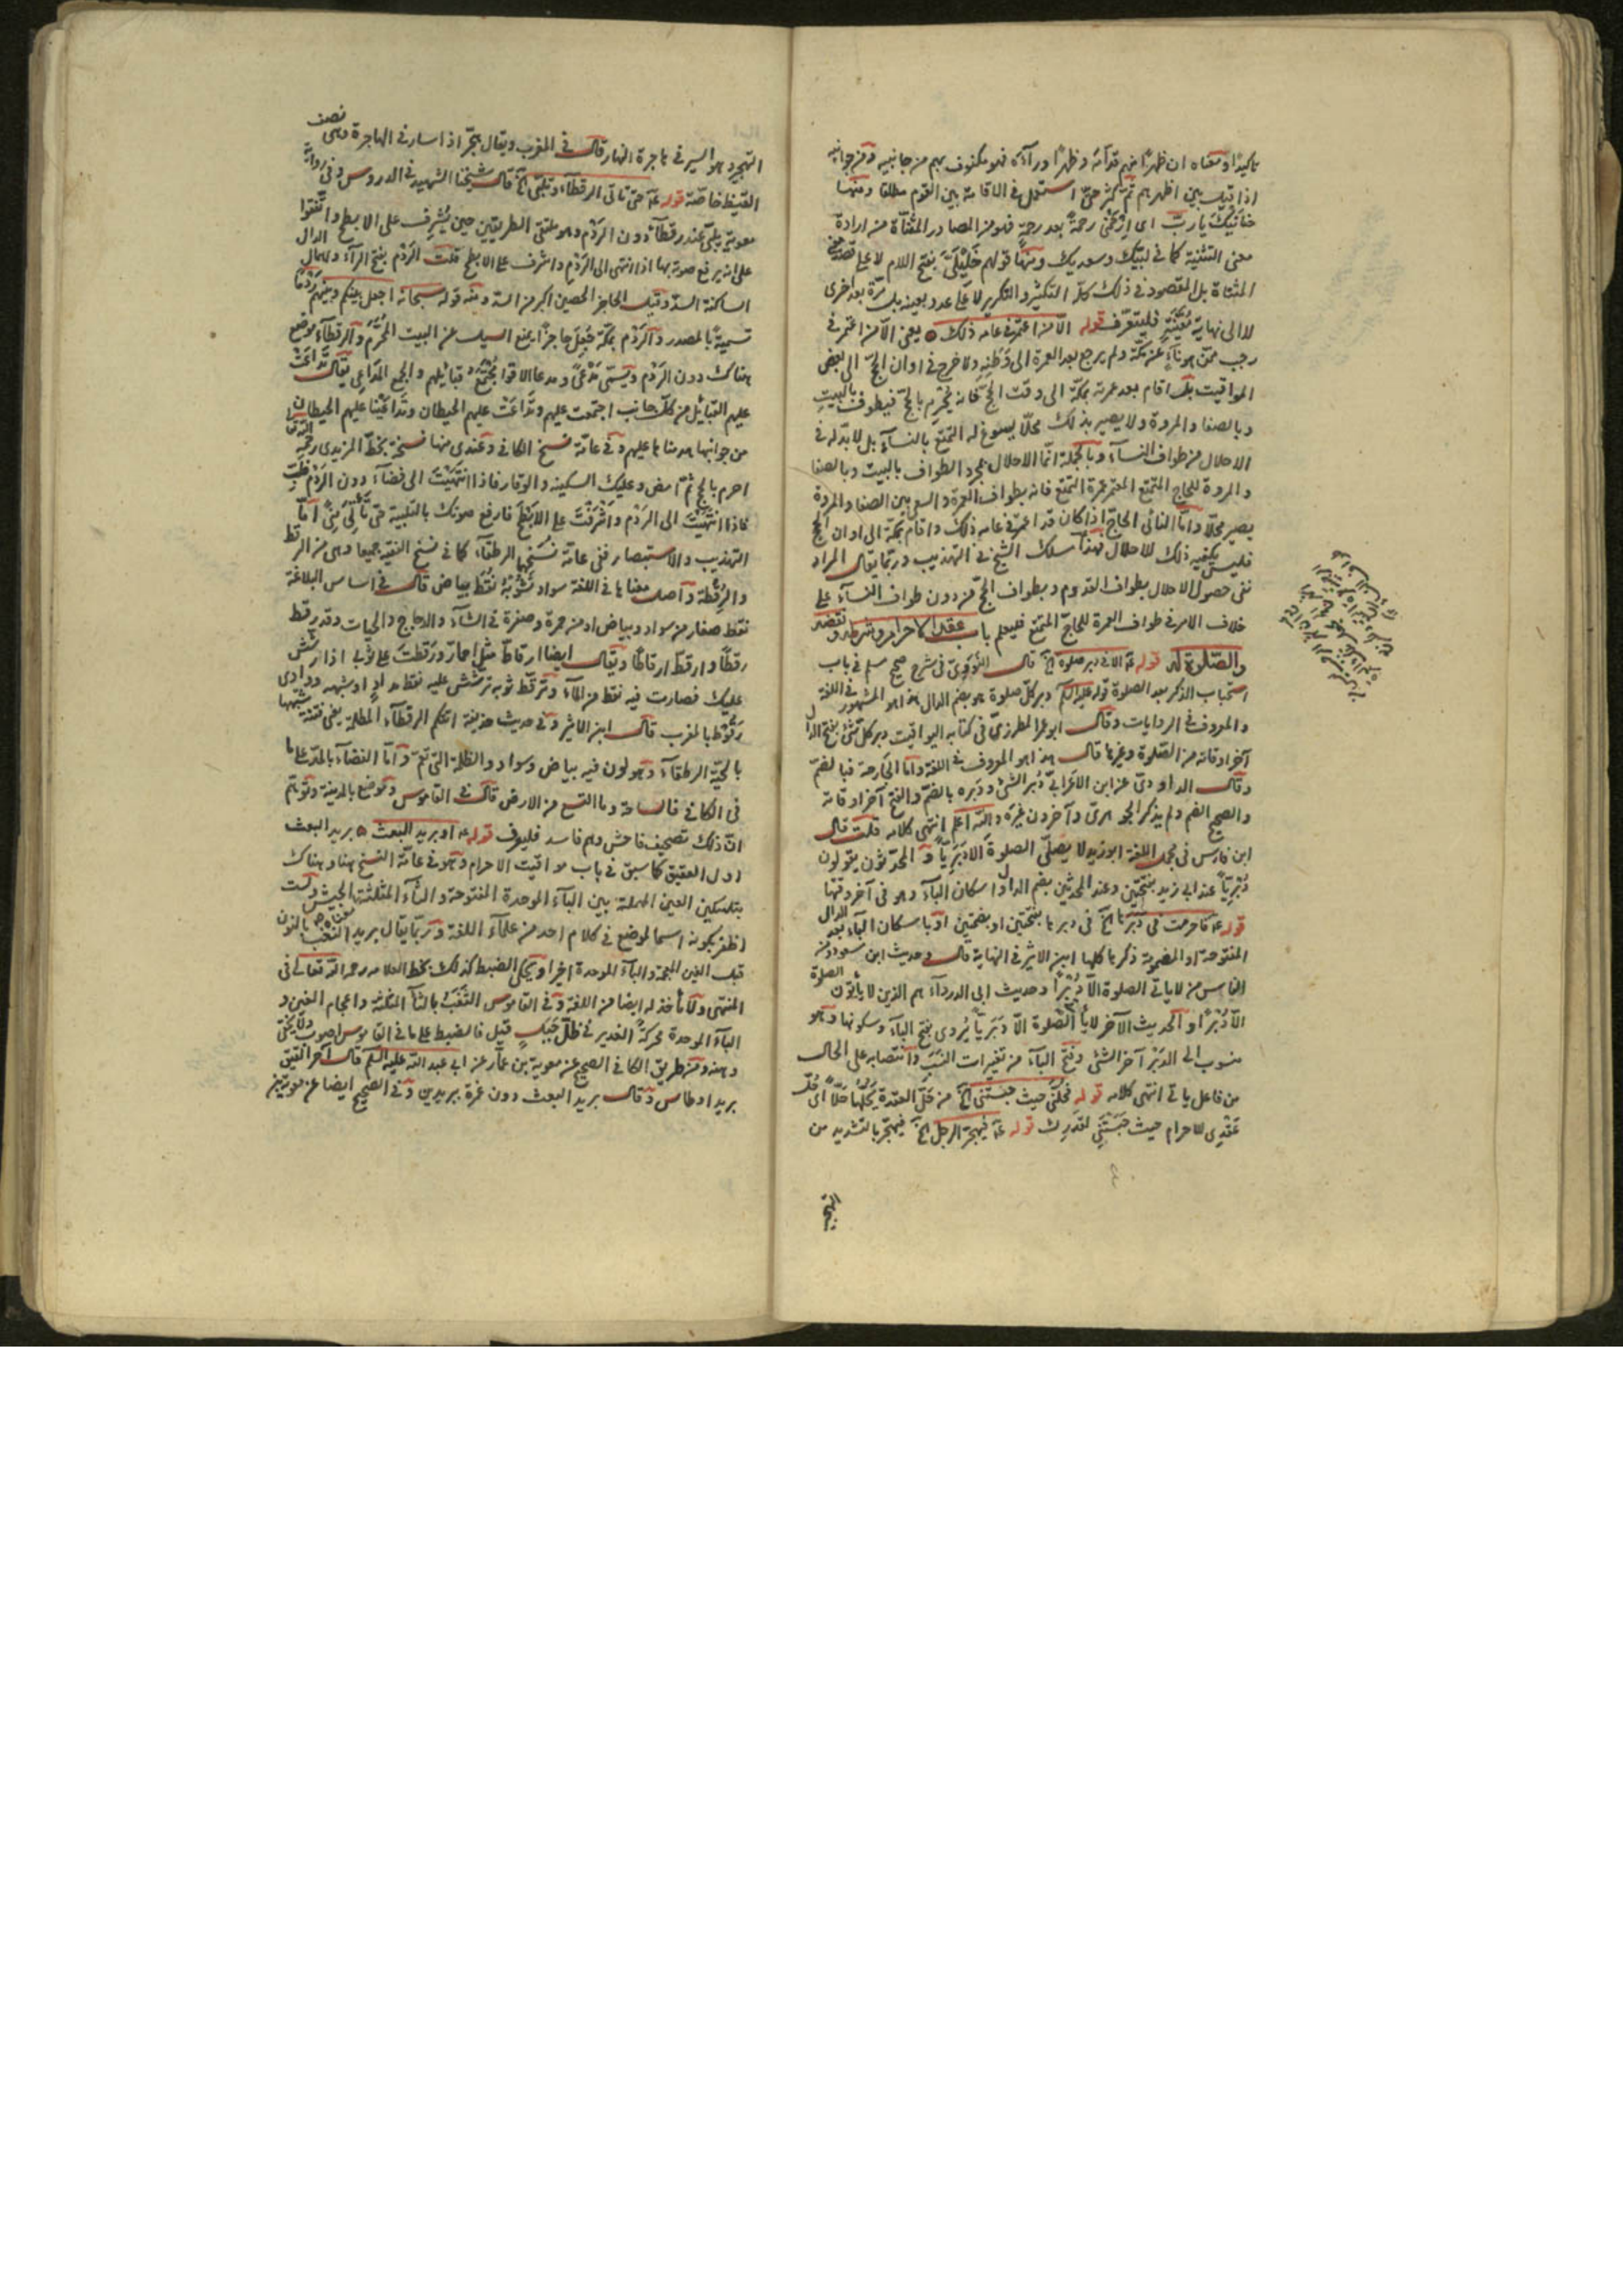 تاكيدًا ومعناه ان ظهرًا منهم قدامه وظهرًا ورآءه فهو مكنوف بهم من جانبيه ومن جوانبه
اذا قيل بين اظهرهم ثم كثر حتى استعمل في الاقامة بين القوم مطلقا ومنها
حنانيك يا رب اى ارحمنى رحمة بعد رحمة فهو من المصادر المثناة من ارادة
معنى التثنية كما في لبيك وسعديك ومنها قولهم خليلى بفتح اللام لا على قصد
المثناة بل المقصود في ذلك كله التكثير والتكرير لا على عدد بعينه بل مرة بعد اخرى
لا الى نهاية معينة فليتعرف قوله الا من اعتمر في عامه ذلك يعنى الا من اعتمر في
رجب ممن هو نآء عن مكة ولم يرجع بعد العمرة الى وطنه ولا خرج في اوان الحج الى بعض
المواقيت بل اقام بعد عمرته بمكة الى وقت الحج فانه يحرم بالحج فيطوف بالبيت
وبالصفا والمروة ولا يصير بذلك محلا يسوغ له التمتع بالنسآء بل لا بد له في
الاحلال من طواف النسآء وبالجملة انما الاحلال بمجرد الطواف بالبيت وبالصفا
والمروة للحاج المتمتع المعتمر عمرة التمتع فانه بطواف العمرة والسعى بين الصفا والمروة
يصير محلا واما النائى الحاج اذا كان قد اعتمر في عامه ذلك واقام بمكة الى اوان الحج
فليس يكفيه ذلك للاحلال بهذا سلك الشيخ في التهذيب وربما يقال المراد
نفى حصول الاحلال بطواف القدوم وبطواف الحج من دون طواف النسآء على
خلاف الامر في طواف العمرة للحاج المتمتع فليعلم باب عقد الاحرام وشرطه ونقضه
والصلوة له قوله ع الا في دبر صلوة الخ قال النووى في شرح صحيح مسلم في باب
استحباب الذكر بعد الصلوة قوله عليه السلم دبر كل صلوة هو بضم الدال هذا هو المشهور في اللغة
والمعروف في الروايات وقال ابو عمر المطرزى في كتابه اليواقيت دبر كل شئ بفتح الدال
آخر اوقاته من الصلوة وغيرها قال هذا هو المعروف في اللغة واما الجارحة فبالضم
وقال الداودى عن ابن الاعرابى دبر الشئ ودبره بالضم والفتح آخر اوقاته
والصحيح الضم ولم يذكر الجوهرى وآخرون غيره والله اعلم انتهى كلامه قلت قال
ابن فارس في مجمل اللغة ابو زيد لا يصلى الصلوة الا دبريا والمحدثون يقولون
دبريا عند ابى زيد بفتحتين وعند المحدثين بضم الدال واسكان البآء وهو في آخر وقتها
قوله ع فاحرمت في دبرها الخ في دبرها بفتحتين او بضمتين او باسكان البآء بعد الدال
المفتوحة او المضمومة ذكرها كلها ابن الاثير في النهاية قال وحديث ابن مسعود ومن
الناس من لا ياتى الصلوة الا دبرا وحديث ابى الدردآء هم الذين لا ياتون الصلوة
الا دبرا والحديث الآخر لا ياتى الصلوة الا دبريا يروى بفتح البآء وسكونها وهو
منسوب الى الدبر آخر الشئ وفتح البآء من تغييرات النسب وانتصابه على الحال
من فاعل ياتى انتهى كلامه قوله فحلنى حيث حبستنى الخ من حل العقدة يحلها حلا اى حل
عقدى للاحرام حيث حبستنى لقدرك قوله ع فيهجر الرجل الخ فيهجر بالتشديد من
التهجير
التهجير وهو السير في هاجرة النهار قال في المغرب ويقال هجر اذا سار في الهاجرة وهى نصف
القيظ خاصة قوله ع حتى تاتى الرقطآء وتلبى الخ قال شيخنا الشهيد في الدروس وفي رواية
معوية يلبى عند رقطآء دون الردم وهو ملتقى الطريقين حين يشرف على الابطح واتفقوا
على انه يرفع صوته بها اذا انتهى الى الردم واشرف على الابطح قلت الردم بفتح الرآء واهمال الدال
الساكنة السد وقيل الحاجز الحصين اكبر من السد ومنه قوله سبحانه اجعل بينكم وبينهم ردما
تسمية بالمصدر والردم بمكة جعل حاجزا يمنع السيل عن البيت المحرم والرقطآء موضع
هناك دون الردم ويسمى مدعى ومدعا الاقوام مجتمع قبائلهم والجمع المداعى يقال تداعت
عليهم القبائل من كل جانب اجتمعت عليهم وتداعت عليهم الحيطان وتداعينا عليهم الحيطان
من جوانبها هدمناها عليهم وفي عامة نسخ الكافى وعندى منها نسخة بخط المزيدى رحمه الله تعالى
احرم بالحج ثم امض وعليك السكينة والوقار فاذا انتهيت الى فضآء دون الردم فلب
فاذا انتهيت الى الردم واشرفت على الابطح فارفع صوتك بالتلبية حتى تاتى منى اما
التهذيب والاستبصار ففى عامة نسخهما الرقطآء كما في نسخ الفقيه جميعا وهى من الرقط
والرقطة واصل معناها في اللغة سواد تشوبه نقط بياض قال في اساس البلاغة
نقط صغار من سواد وبياض او من حمرة وصفرة في الشآء والدجاج والحيات وقد رقط
رقطا وارقط ارقطاطا ويقال ايضا ارقاط مثل احمار ورقطت على ثوبى اذا رشش
عليك فصارت فيه نقط من المآء وترقط ثوبه ترشش عليه نقط مداد او شبهه ووادى
رقوط بالمغرب قال ابن الاثير وفي حديث حذيفة اتتكم الرقطآء المظلمة يعنى فتنة شبهها
بالحية الرقطآء وهو لون فيه بياض وسواد والظلمة التى تعم واما الفضآء بالمد على ما
في الكافى فالساحة وما اتسع من الارض قال في القاموس وموضع بالمدينة وتوهم
ان ذلك تصحيف فاحش وهم فاسد فليعرف قوله ع او بريد البعث بريد البعث
اول العقيق كما سبق في باب مواقيت الاحرام وهو في عامة النسخ هنا وهناك
بتسكين العين المهملة بين البآء الموحدة المفتوحة والثآء المثلثة الجيش ولست
اظفر بكونه اسما لموضع في كلام احد من علمآء اللغة وربما يقال بريد النغب بالنون
قبل الغين المعجمة والبآء الموحدة اخيرا ويحكى الضبط كذلك بخط العلامة رحمه الله تعالى في
المنتهى ولا مأخذ له ايضا من اللغة وفي القاموس الثغب بالثآء المثلثة واعجام الغين و
البآء الموحدة محركة الغدير في ظل جبل قيل فالضبط على ما في القاموس اصوب ولا يخفى
وهذه ومن طريق الكافى الصحيح عن معوية بن عمار عن ابى عبد الله عليه السلم قال آخر العقيق
بريد اوطاس وقال بريد البعث دون غمرة ببريدين وفي الصحيح ايضا عن معوية بن